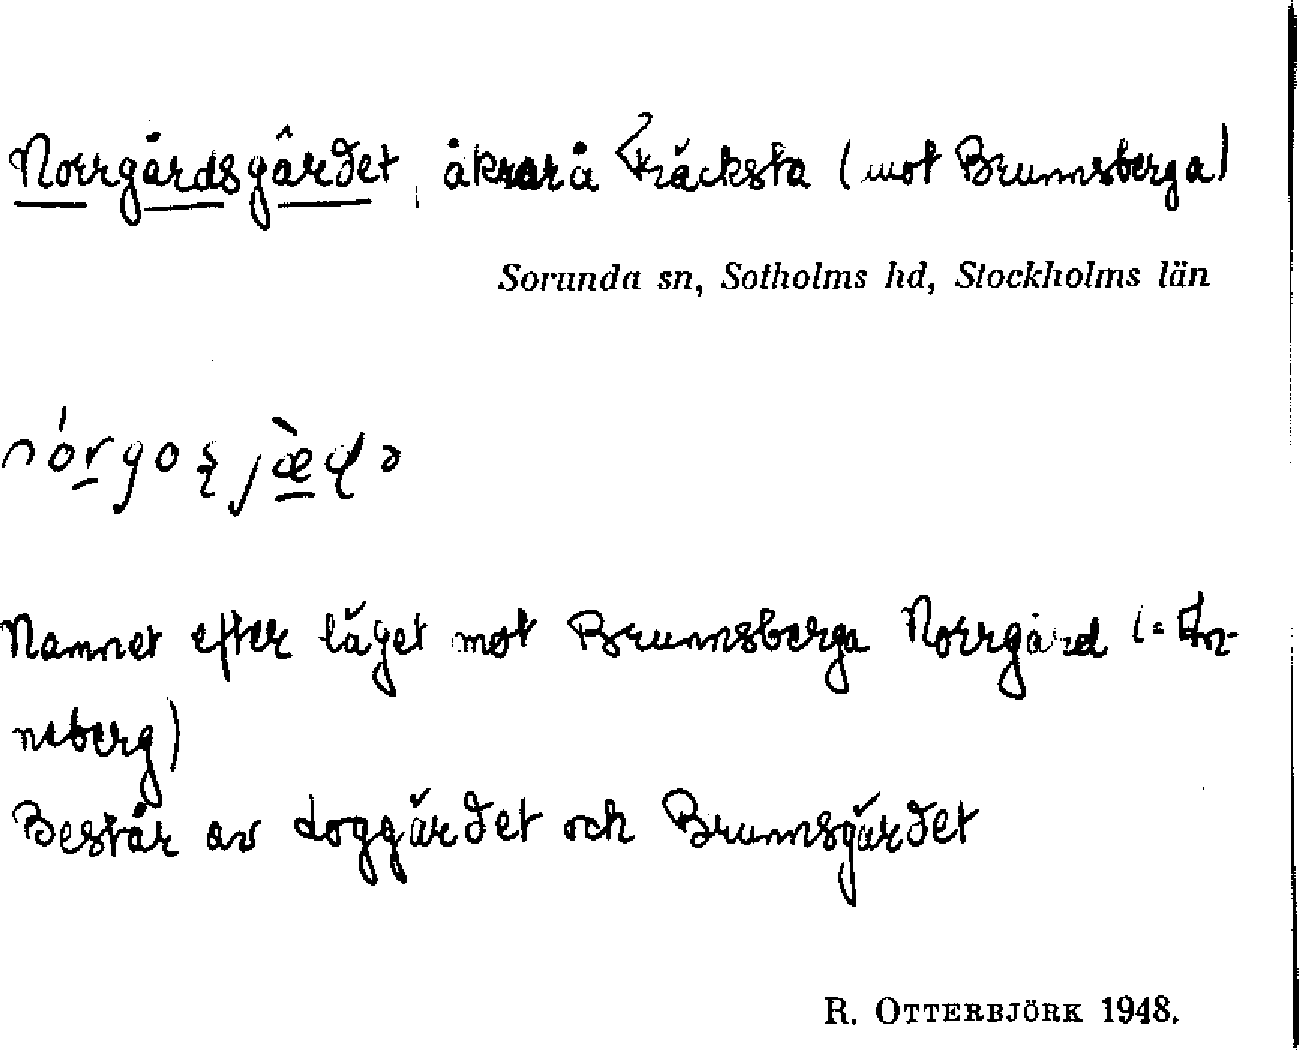 Norrgårdsgärdet, åkrar å Fräcksta (mot Brunnsberga)
Sorunda sn, Sotholms hd, Stockholms län
Namnet efter läget mot Brunnsberga Norrgård (= An-
neberg)
Består av Loggärdet och Brunnsgärdet
R. OTTERBJÖRK 1948.